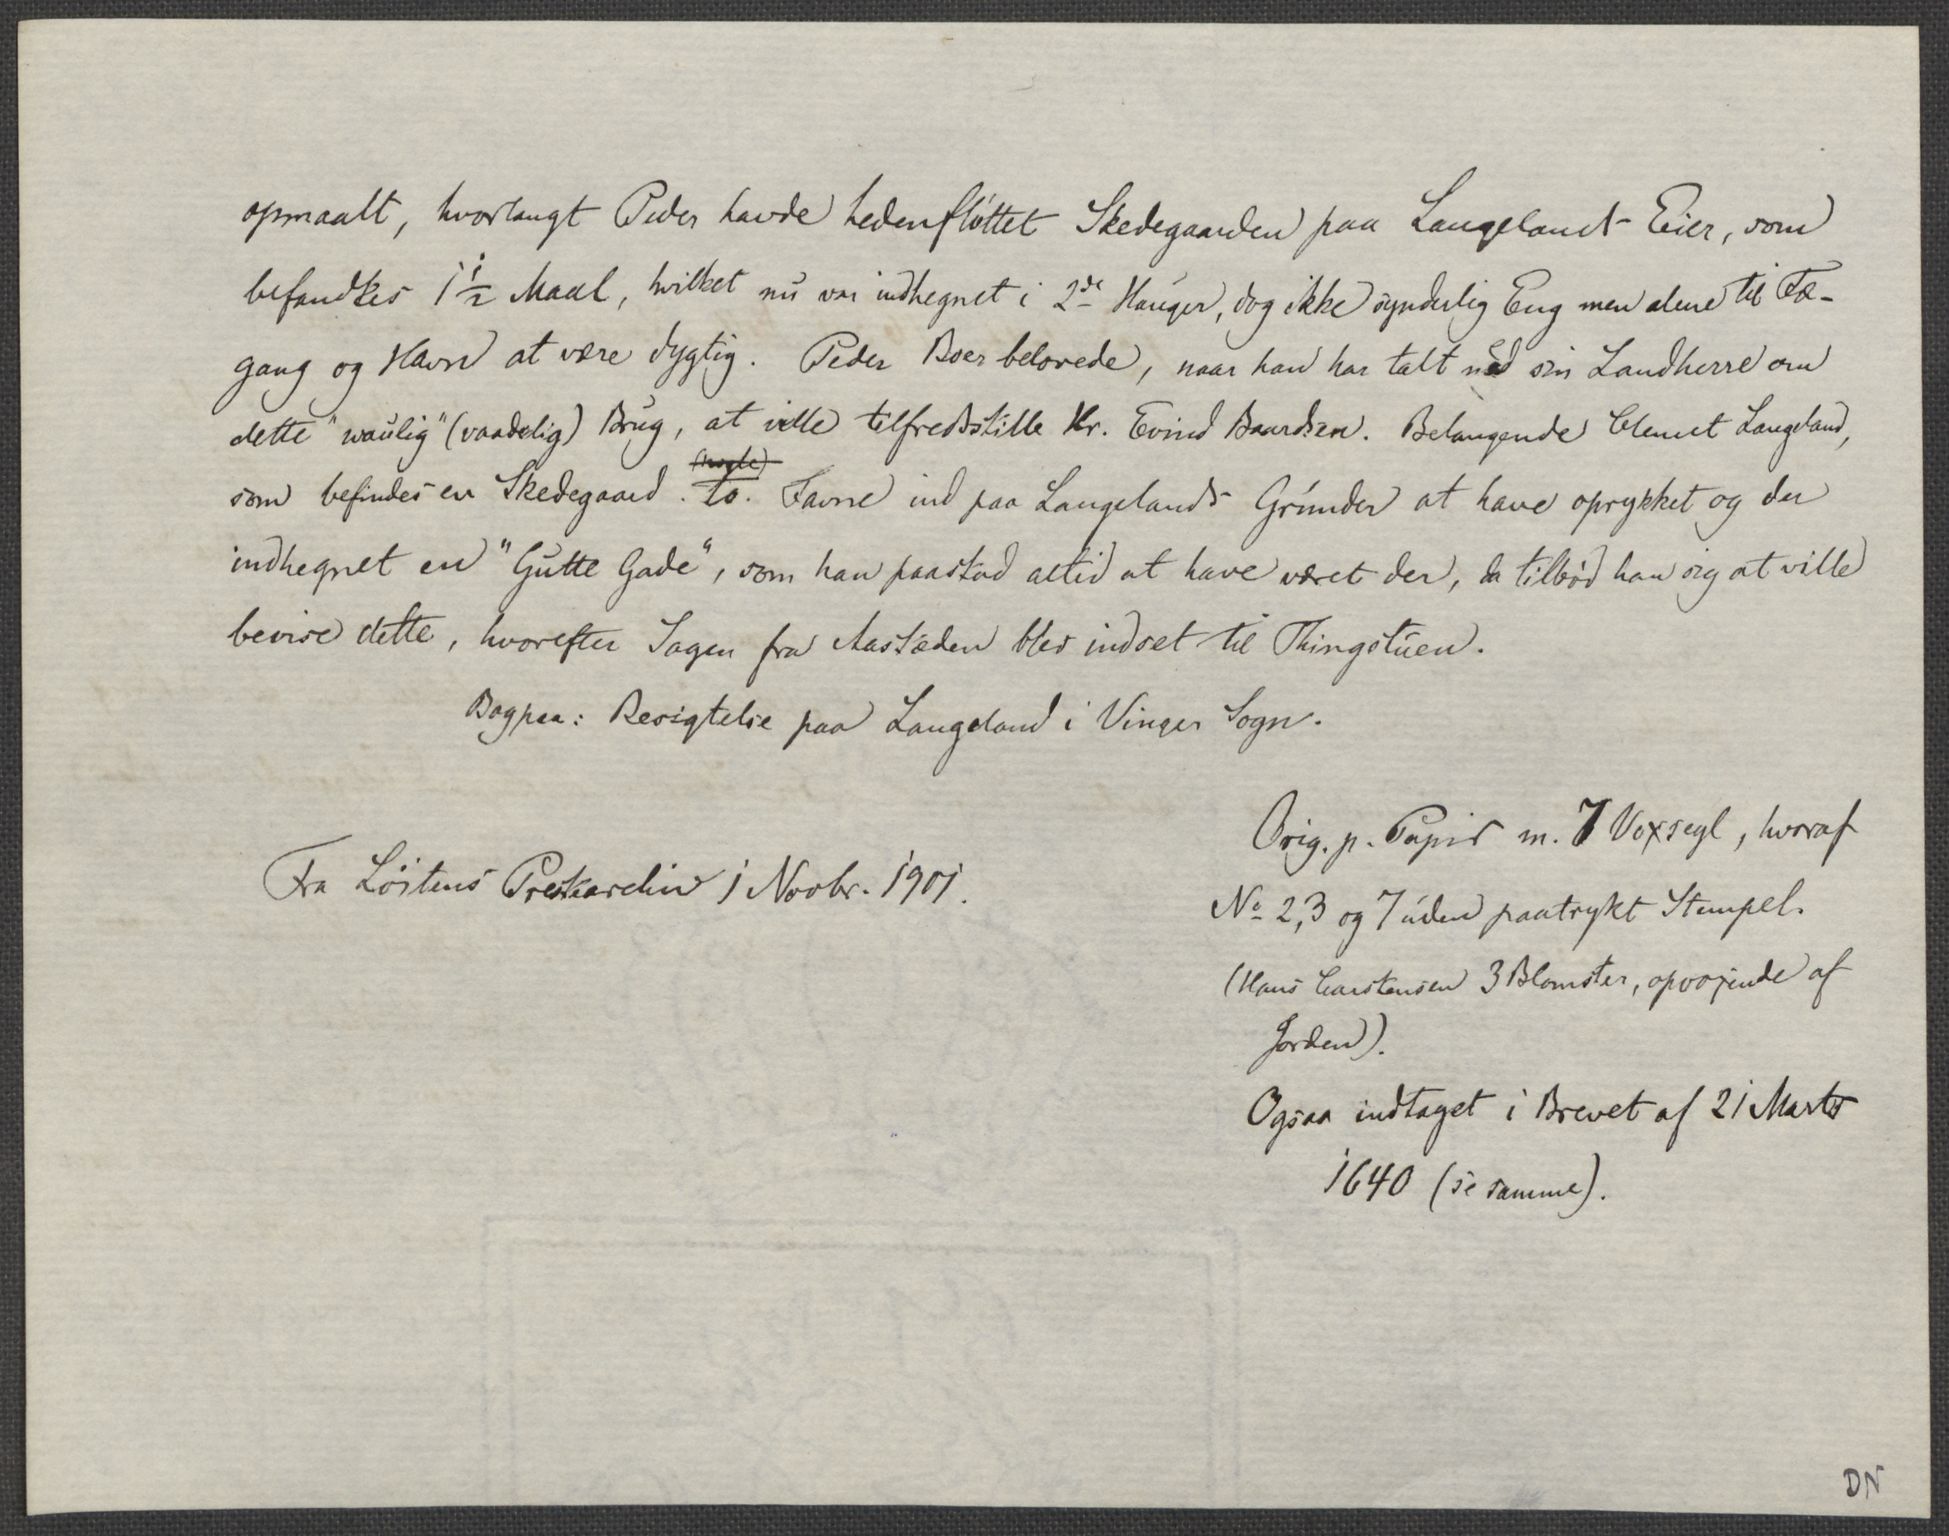 opmaalt, hvorlangt Peder havde hedenfløttet Skedegaarden paa Langelands Eier, som
befandtes 1 1/2 Maal, hvilket nu var indhegnet i 2de Hauger, dog ikke synderlig Eng men alene til Fæ-
gang og Havn at være dygtig. Peder Boer belovede, naar han har talt med sin Landherre om
dette "waulig" (vaadelig) Brug, at ville tilfredsstille Hr. Evind Baardsen. Belangende Clemet Langeland,
som befindes en Skedegaard . to. Favne ind paa Langelands Grunder at have oprykket og der
(nogle)
indhegnet en "Gutte Gade", som han paastod altid at have været der, da tilbød han sig at ville
bevise dette, hvorefter Sagen fra Aastæden blev indset til Thingstuen.
Bagpaa: Besigtelse paa Langeland i Vinger Sogn.
Orig. p. Papir m. 7 Voxsegl, hvoraf
Fra Løitens Prestearchiv 1 Novbr. 1901.
No 2, 3 og 7 uden paatrykt Stempel.
(Hans Carstensen 3 Blomster, opvoxende af
Jorden).
Ogsaa indtaget i Brevet af 21 Marts
1640 (se samme).
DN